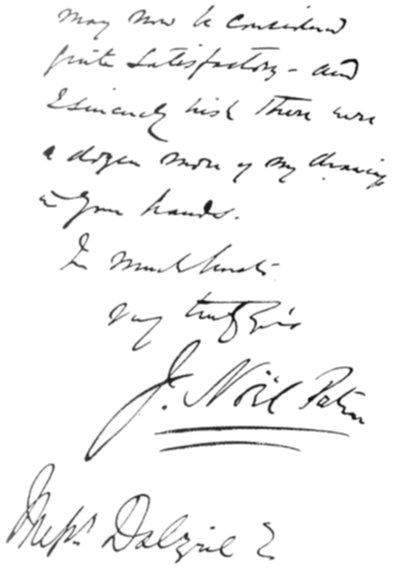 may now be considered
quite satisfactory - and
I sincerely wish there were
a dozen more of my drawings
in your hands.
In much haste
very truly yrs
J. Nöel Paton
Messrs Dalziel